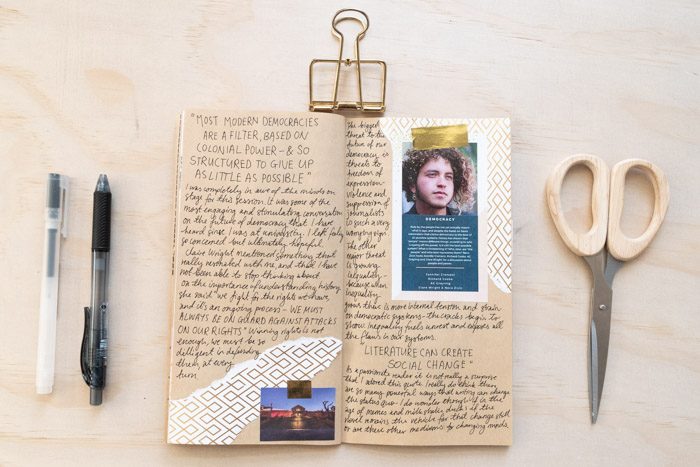 "MOST MODERN DEMOCRACIES
ARE A FILTER, BASED ON
COLONIAL POWER - & SO
STRUCTURED TO GIVE UP
AS LITTLE AS POSSIBLE"
I was completely in awe of the minds on
stage for this session. It was some of the
most engaging and stimulating conversation
on the future of democracy that I have
heard since I was at university. I left fully
concerned but ultimately, hopeful.
Claire Wright mentioned something that
really resonated with me, and that I have
not been able to stop thinking about
on the importance of understanding history
She said "we fight for the rights we have,
and it's an ongoing process - WE MUST
ALWAYS BE ON GUARD AGAINST ATTACKS
ON OUR RIGHTS" Winning rights is not
enough, we must be so
dilligent in defending
them at every
turn.
The biggest
threat to the
future of our
democracy, is
threats to
freedom of
expression -
violence and
suppression of
journalists
to such a very
worrying sign.
The other
major threat
is growing
inequality -
because when
inequality
grows there is more internal tension and strain
on democratic systems - the cracks begin to
show. Inequality fuels unrest and exposes all
the flaws in our systems.
DEMOCRACY
"LITERATURE CAN CREATE
SOCIAL CHANGE"
As a passionate reader it is not really a surprise
that I adored this quote. I really do think there
are so many powerful ways that writing can change
the status quo. I do wonder though if in the
age of memes and
novel remains the vehicle for that change still
or are there other mediums for changing minds.